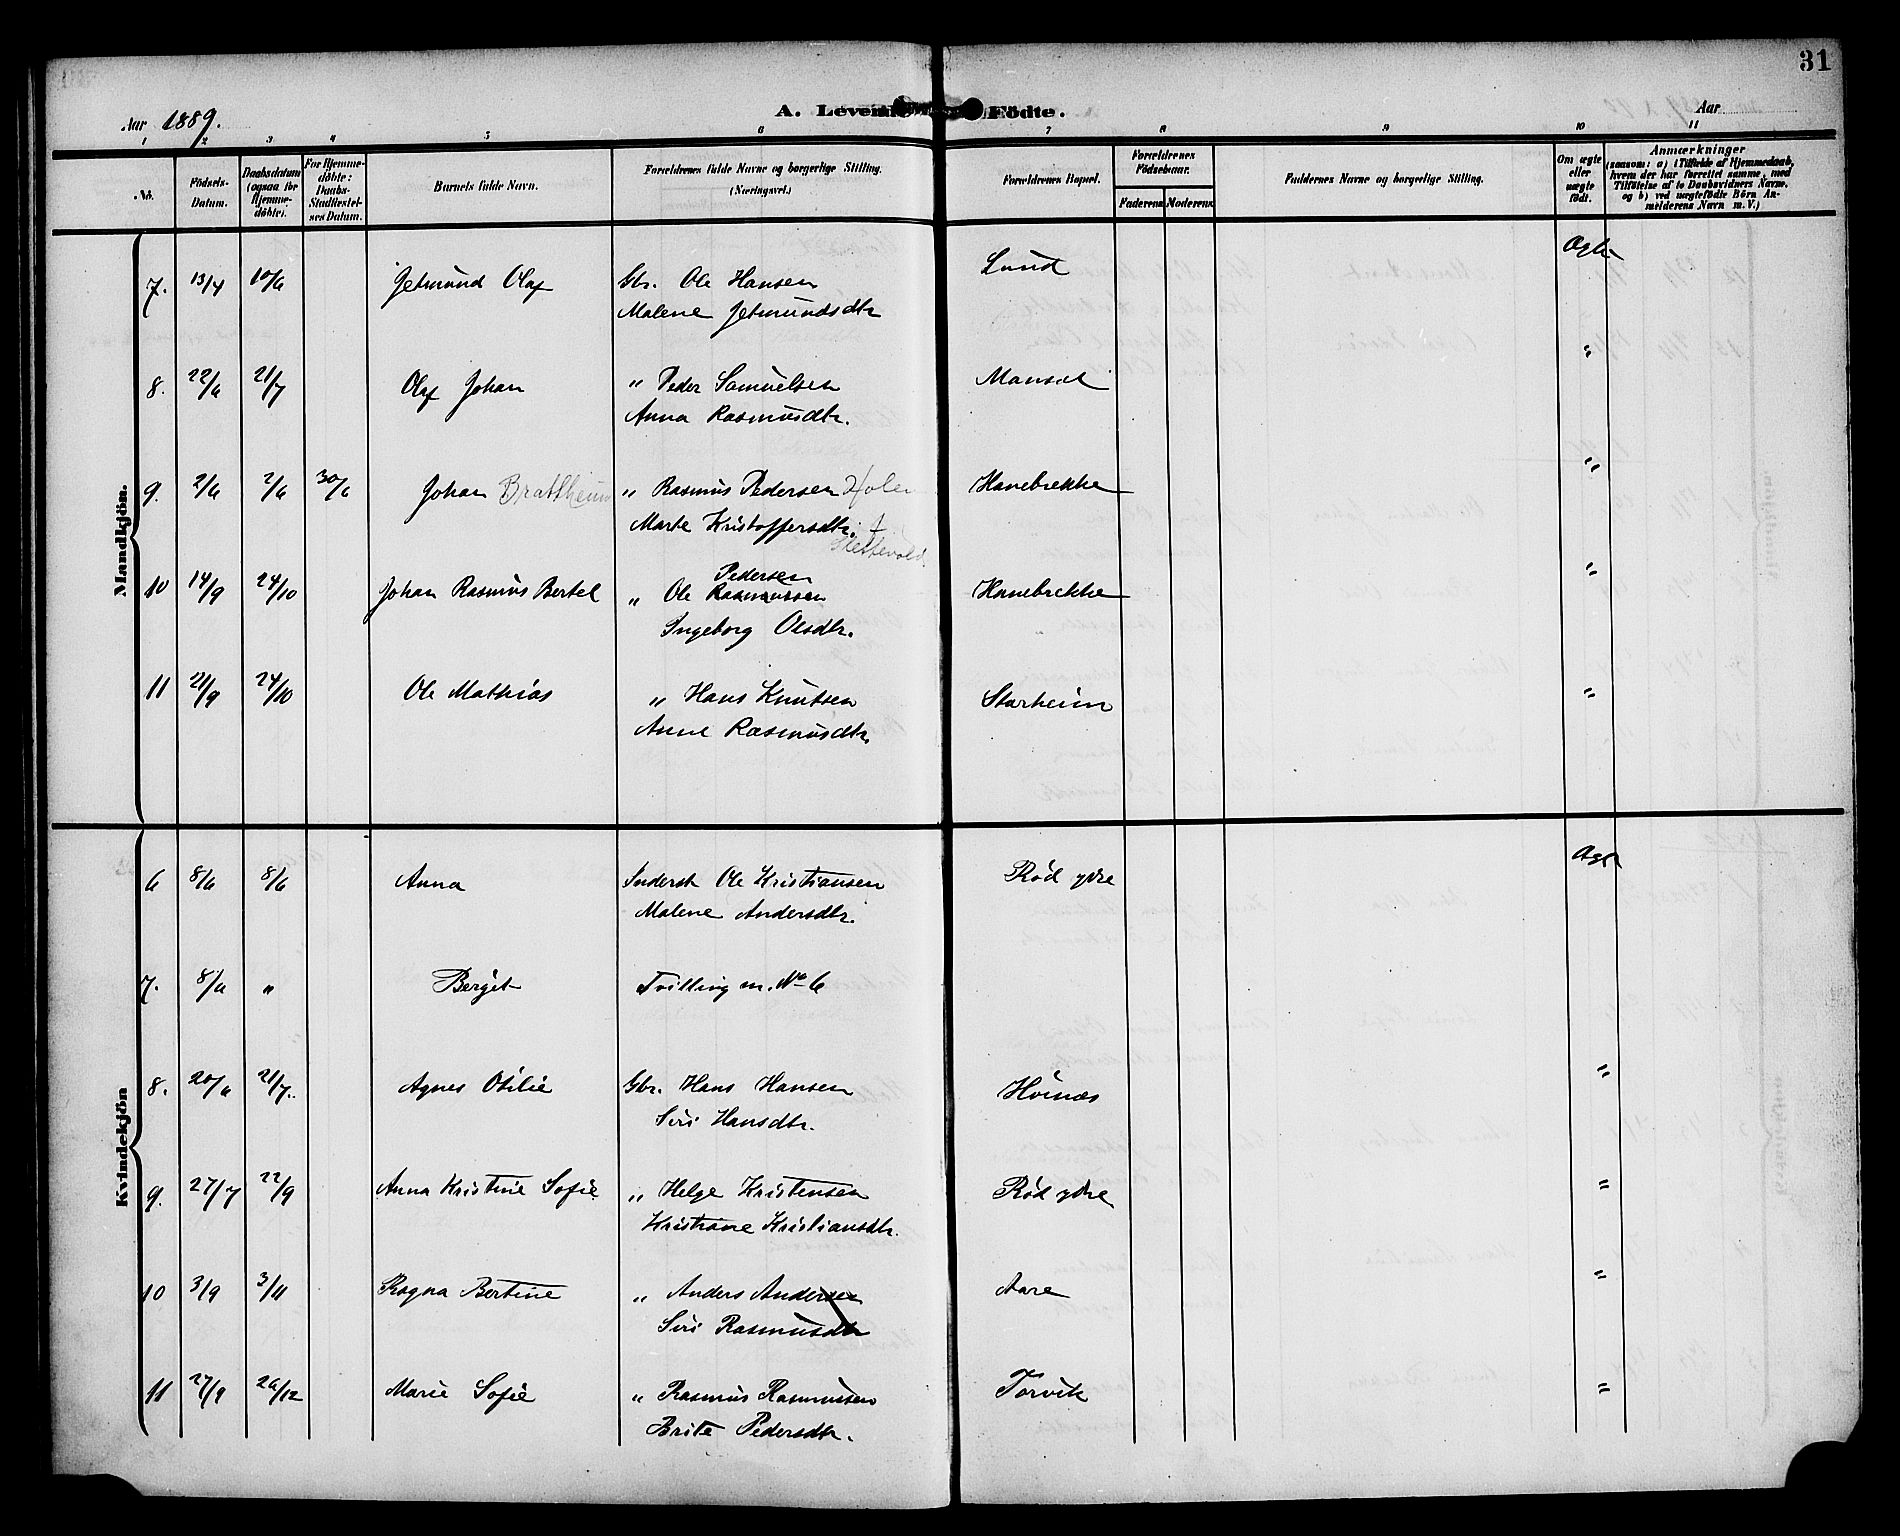 31
Aar 1889.
A. Levende Födte.
Aar
1 2 3 4 5 6 7 8 9 10 11
No.
Födsels-Datum.
Daabsdatum (ogsaa for Hjemmedöbte).
For Hjemmedöbte: Daabs-Stadfæstelses Datum.
Barnets fulde Navn.
Forældrenes fulde Navne og borgerlige Stilling. (Næringsvei.)
Forældrenes Bopæl.
Forældrenes Födselsaar.
Faderens Moderens
Faddernes Navne og borgerlige Stilling.
Om ægte eller uægte födt.
Anmærkninger (saasom: a) i Tilfælde af Hjemmedaab, hvem der har forrettet samme, med Tilföielse af to Daabsvidners Navne, og b) ved uægtefödte Börn Anmelderens Navn m. V.)
Mandkjön.
7. 13/4 10/6 Jetmund Olaf Gbr. Ole Hansen Lund Ægte
Malene Jetmundsdtr
8. 22/6 21/7 Olaf Johan " Peder Samuelsen "
Anna Rasmusdtr.
9. 2/6 2/6 30/6 Johan Brattheim " Rasmus Pedersen Holen Hanebrekke "
Marte Kristoffersdtr.
Slettevold.
Pedersen
10 14/9 24/10 Johan Rasmus Bertel " Ole Rasmussen Hanebrekke "
Ingeborg Olsdtr.
11 21/9 24/10 Ole Mathias " Hans Knutsen Starheim "
Anne Rasmusdtr.
Kvindekjön
6 8/6 8/6 Anna Inderst Ole Kristiansen Rød ydre Ægte
Malene Andersdtr.
7. 8/6 " Berget Tvilling m. No 6
8. 20/6 21/7. Agnes Otilie Gbr. Hans Hansen Hoinæs "
Siri Hansdtr.
9. 27/7 22/9 Anna Kristine Sofie " Helge Kristensen Rød ydre "
Kristiane Kristiansdtr.
10 3/9 3/11 Ragna Bertine " Anders Andersen Aare "
Siri Rasmusdtr
11 27/9 26/12 Marie Sofie " Rasmus Rasmussen Torvik "
Brite Pedersdtr.